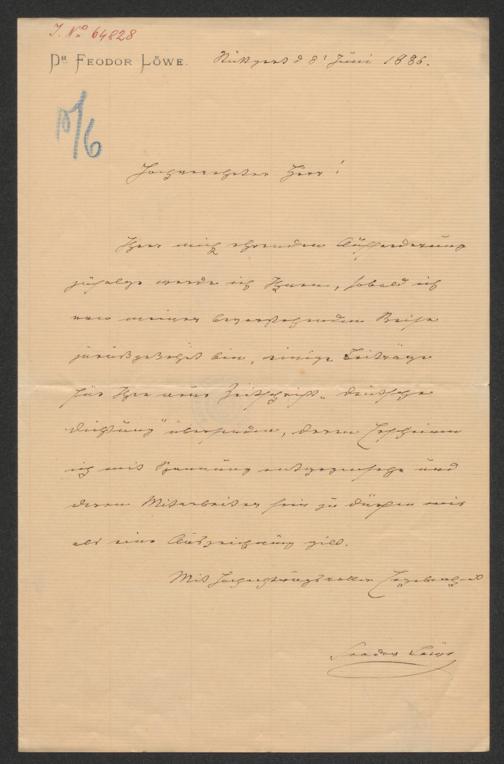 J. No 64828
Dr. FEODOR LÖWE.
Stuttgart d 8t Juni 1886.
10/6
Hochverehrter Herr!
Ihrer mich ehrenden Aufforderung
zufolge werde ich Ihnen, sobald ich
von meiner bevorstehenden Reise
zurückgekehrt bin, einige Beiträge
für Ihre neue Zeitschrift „Deutsche
Dichtung" übersenden, deren Erscheinen
ich mit Spannung entgegensehe und
deren Mitarbeiter sein zu dürfen mir
als eine Auszeichnung gilt.
Mit hochachtungsvoller Ergebenheit
Feodor Löwe